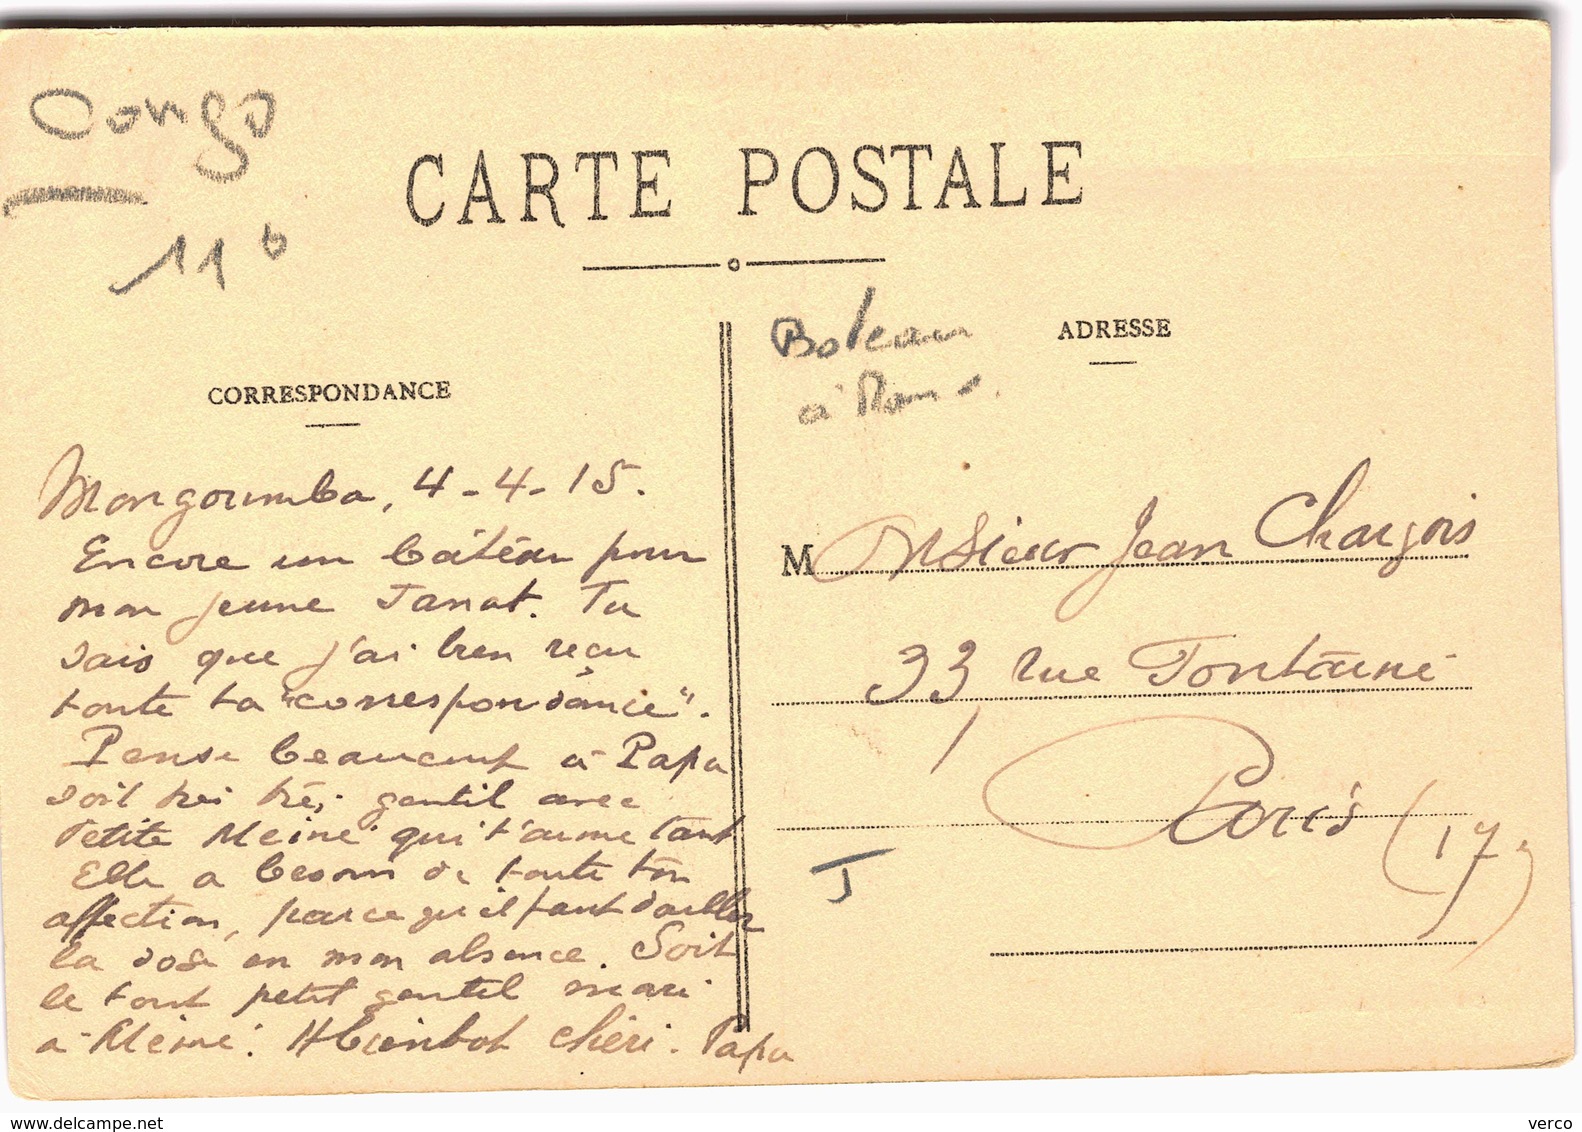 Congo
11
CARTE POSTALE
Bateau
à
ADRESSE
CORRESPONDANCE
Mongoumba, 4-4-15.
Encore un bâteau pour
mon jeune Janot. Tu
sais que j'ai bien reçu
toute ta "correspondance".
Pense beaucoup à Papa
soit très très gentil avec
Petite Meine qui t'aime tant
Elle a besoin de toute ton
affection, parce qu'il faut doubler
la dose en mon absence. Soit
le tout petit gentil mari
à Meine. chéri. Papa
Monsieur Jean Chargois
33, rue Fontaine
Paris (17)
T
www.delcampe.net
verco